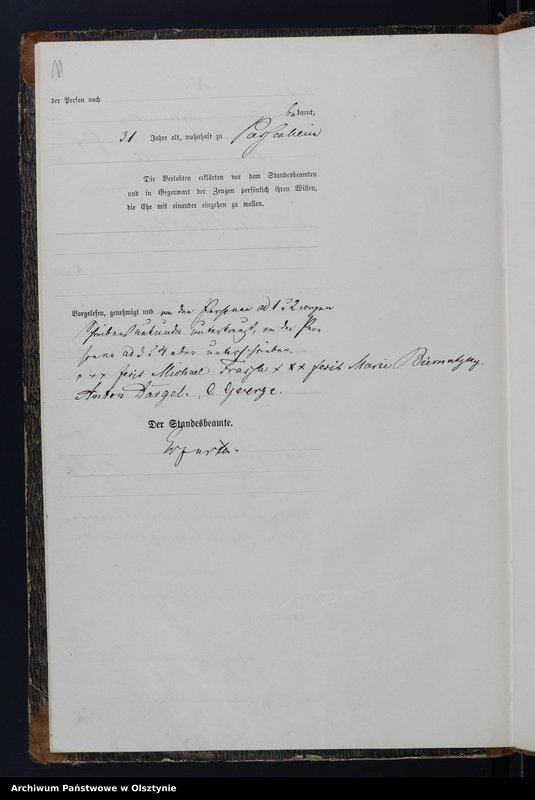 der Person nach
bekannt,
31 Jahre alt, wohnhaft zu
Die Verlobten erklärten vor dem Standesbeamten
und in Gegenwart der Zeugen persönlich ihren Willen,
die Ehe mit einander eingehen zu wollen.
Vorgelesen, genehmigt und von den Personen ad 1 u 2 wegen
Schreibensunkunde unterkreuzt, von den Per-
sonen ad 3 & 4 aber unterschrieben.
x x x fecit Michael x x x fecit Marie
Anton Dargel. C. George.
Der Standesbeamte.